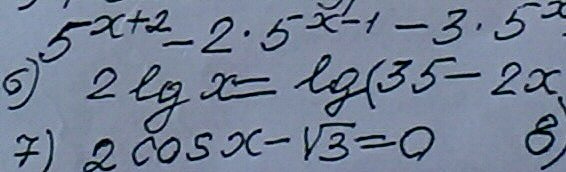 5^{x+2} - 2 · 5^{x-1} - 3 · 5^x
6) 2 lg x = lg(35 - 2x
7) 2 cos x - √3 = 0 8)